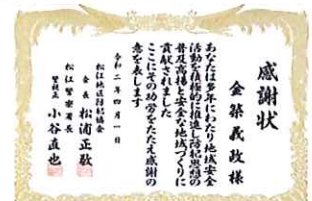 感謝状
金築義政様
あなたは多年にわたり地域安全
活動を積極的に推進し防犯思想の
普及高揚と安全な地域づくりに
貢献されました
ここにその功労をたたえ感謝の
意を表します
令和二年四月一日
松江地区防犯協会
会長 松浦正敬
松江警察署長
警視正 小谷直也